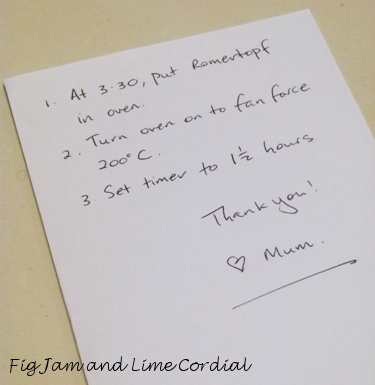 1. At 3:30, put Romertopf
in oven.
2. Turn oven on to fan force
200°C.
3. Set timer to 1½ hours
Thank you!
♡ Mum.
Fig Jam and Lime Cordial